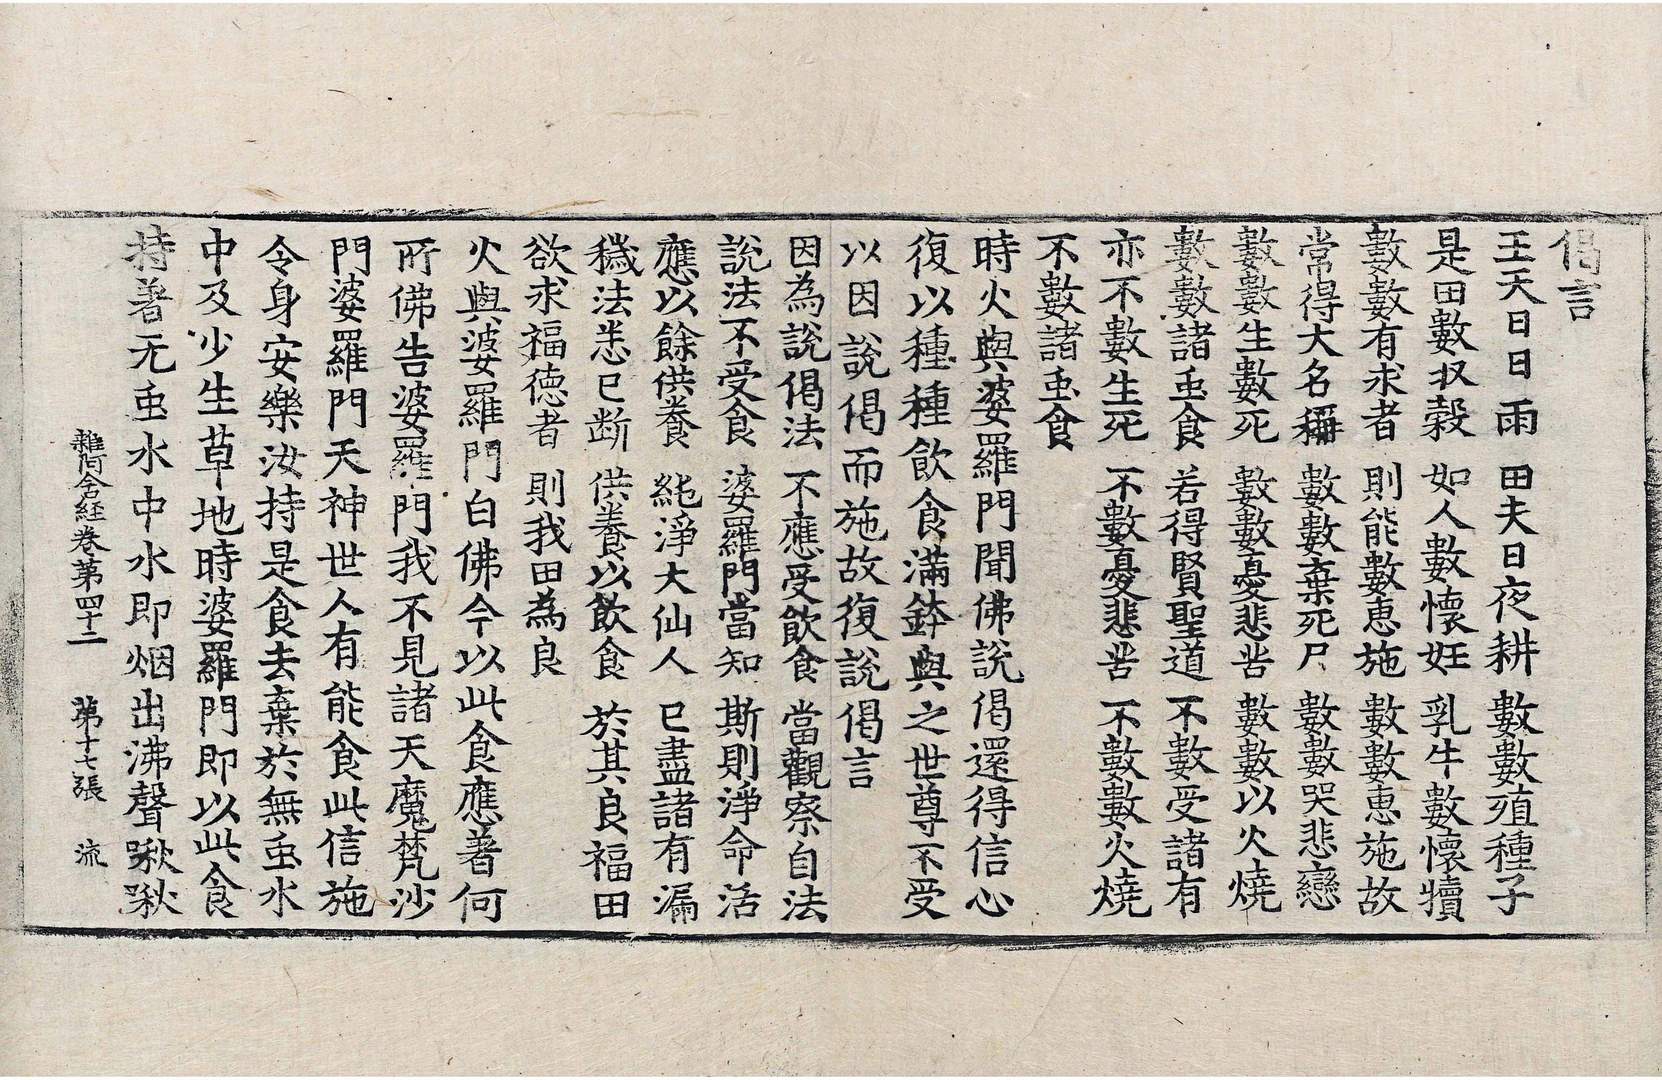 偈言
王天日日雨　田夫日夜耕　數數殖種子
是田數収穀　如人數懷妊　乳牛數懷犢
數數有求者　則能數惠施　數數惠施故
常得大名稱　數數棄死尸　數數哭悲戀
數數生數死　數數憂悲苦　數數以火燒
數數諸䖝食　若得賢聖道　不數受諸有
亦不數生死　不數憂悲苦　不數數火燒
不數諸䖝食
時火與婆羅門聞佛說偈還得信心
復以種種飮食滿鉢與之世尊不受
以因說偈而施故復說偈言
因為說偈法　不應受飮食　當觀察自法
說法不受食　婆羅門當知　斯則淨命活
應以餘供養　純淨大仙人　已盡諸有漏
穢法悉已斷　供養以飮食　於其良福田
欲求福德者　則我田為良
火與婆羅門白佛今以此食應著何
所佛告婆羅門我不見諸天魔梵沙
門婆羅門天神世人有能食此信施
令身安樂汝持是食去棄於無䖝水
中及少生草地時婆羅門即以此食
持著无䖝水中水即烟出沸聲啾啾
雜阿含経卷第四十二　第十七張　流